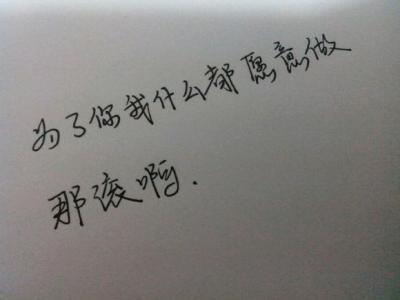 为了你我什么都愿意做
那滚啊.